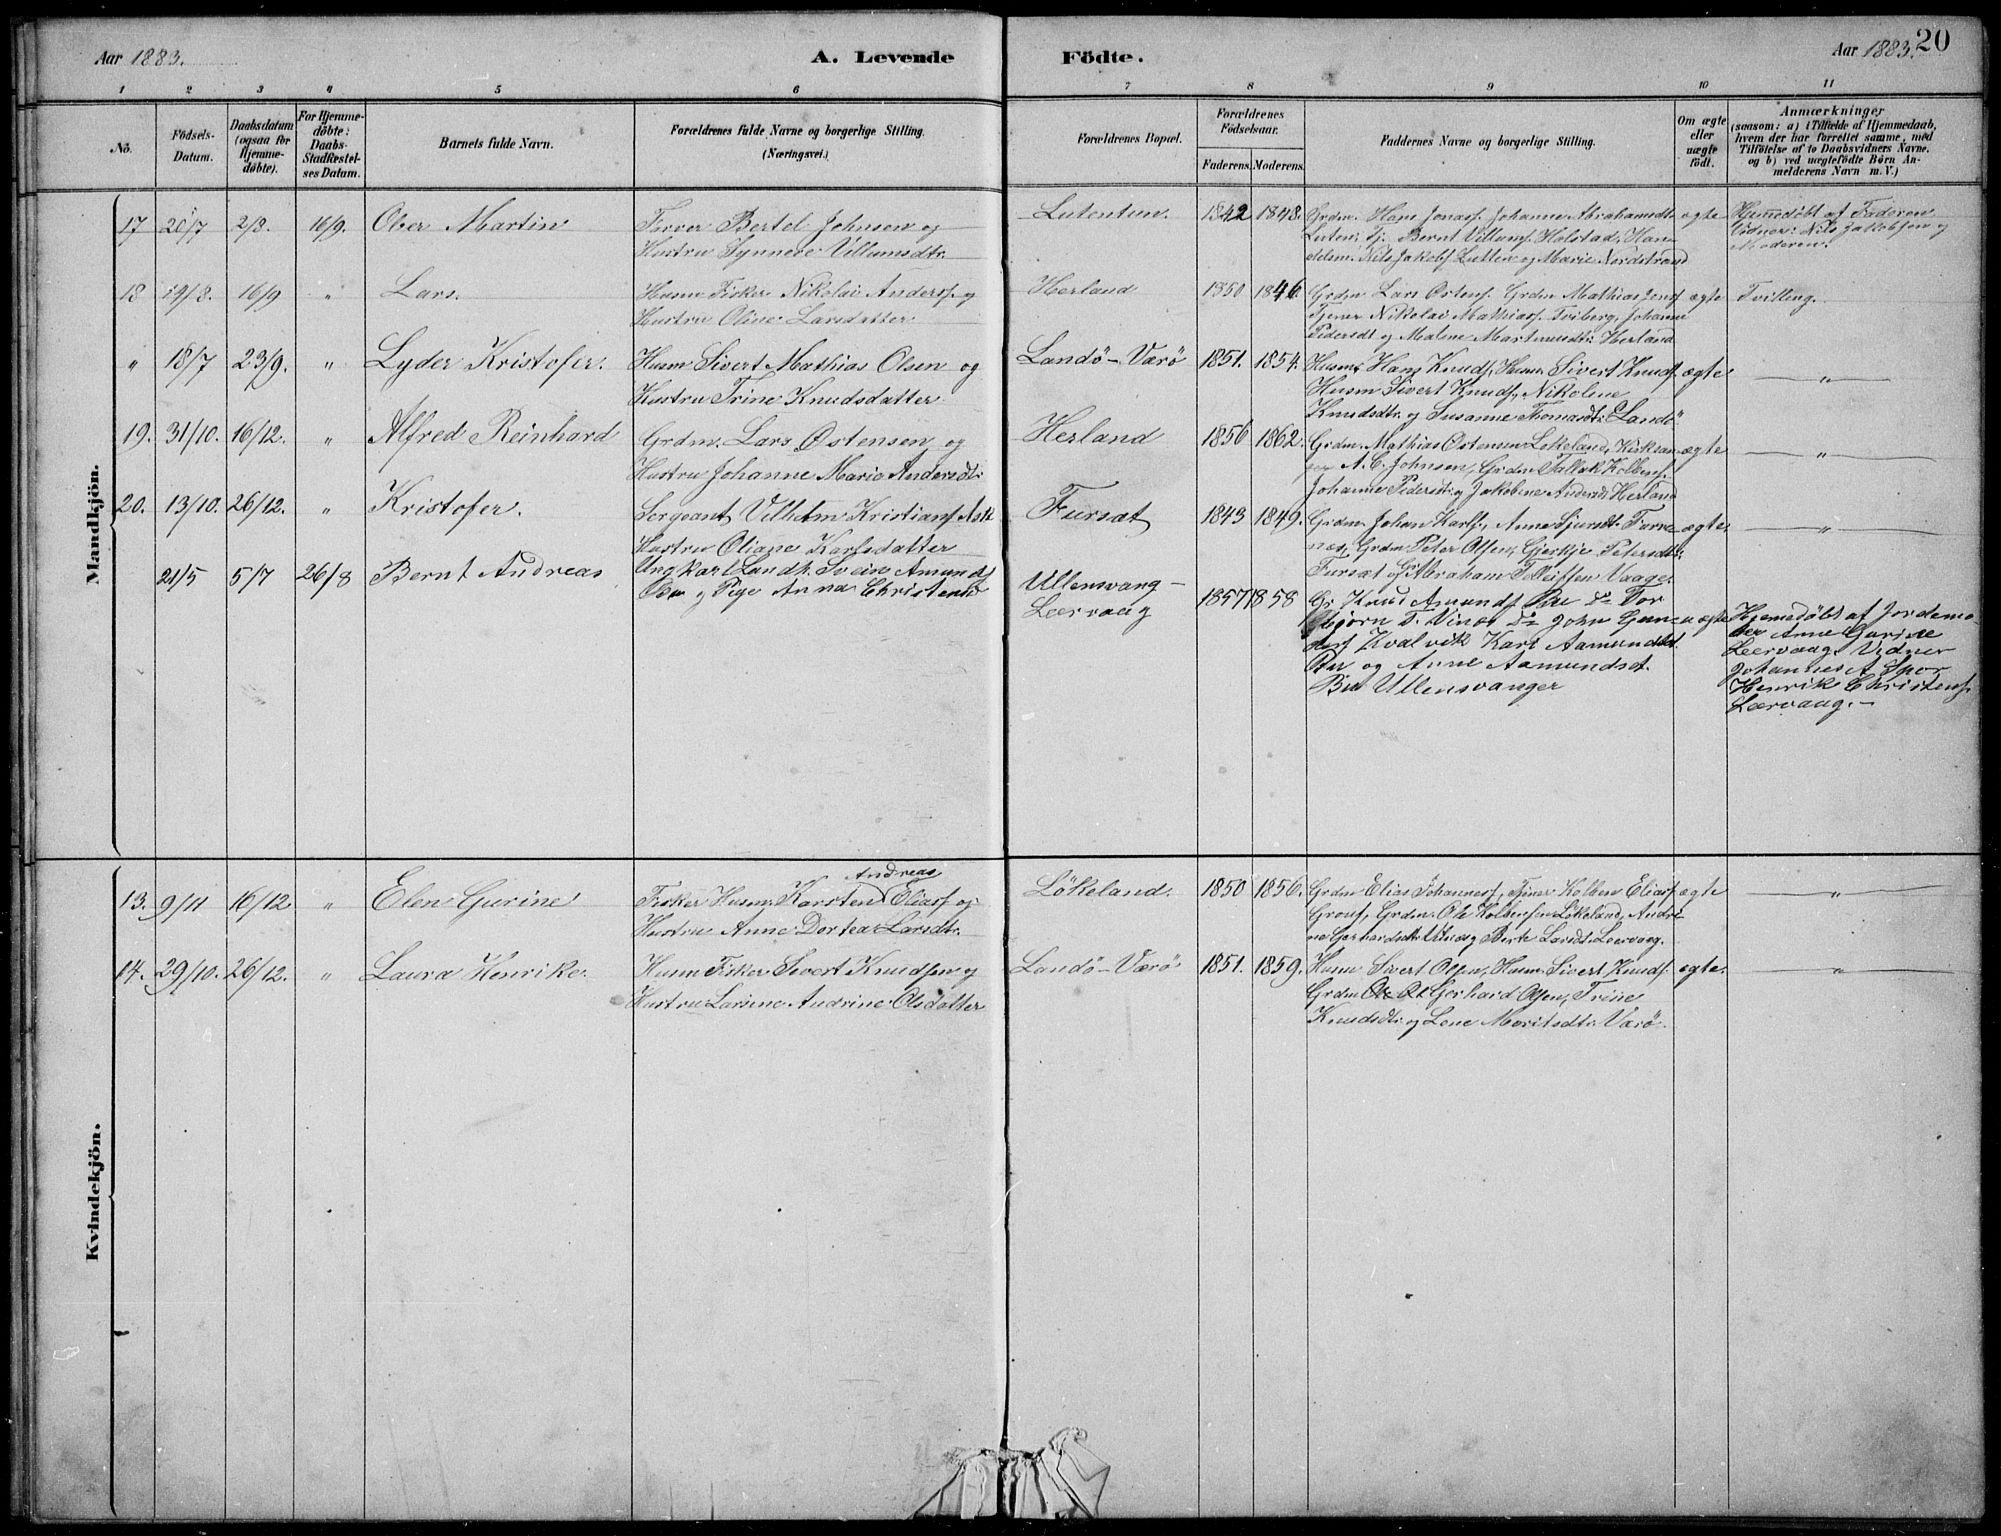 Aar 1883.
A. Levende
Födte.
Aar 1883.
20
1 2 3 4 5 6 7 8 9 10 11
No.
Födsels-
Datum.
Daabsdatum
(ogsaa for
Hjemme-
døbte).
For Hjemme-
døbte:
Daabs-
Stadfæstel-
ses Datum.
Barnets fulde Navn.
Forældrenes fulde Navne og borgerlige Stilling.
(Næringsvei.)
Forældrenes Bopæl.
Forældrenes
Födselsaar.
Faderens. Moderens.
Faddernes Navne og borgerlige Stilling.
Om ægte
eller
uægte
födt.
Anmærkninger
(saasom: a) i Tilfælde af Hjemmedaab,
hvem der har forrettet samme, med
Tilføielse af to Daabsvidners Navne,
og b) ved uægtefödte Börn An-
melderens Navn m. V.)
Mandkjön.
17 20/7 2/8. 16/9. Martin
Bertel Johnsen og
Hustru Synneve Villumsdtr.
1842 1848.
Grdm. Hans Jonass. Johanne Abrahamsdtr.
Bernt Villums. Holstad, Han-
Nils Jakobs. Lutten og Marie Nordstrand
ægte
Hjemmedøbt af Faderen
Vidner: Nils Jakobsen og
Moderen.
18 19/8. 16/9 " Lars.
Husm Fisker Nikolai Anders. og
Hustru Oline Larsdatter
Herland
1850 1846.
Grdm Lars Østens. Grdm Mathias Jens.
Tjener Nikolai Mathias. Johanne
Pidersdt og Malene Martinusdtr. Herland
ægte
Tvilling.
" 18/7 23/9. " Lyder Kristofer.
Husm Sivert Mathias Olsen og
Hustru Trine Knudsdatter
Landö - Værö
1851. 1854.
Husm. Hans Knuds. Husm. Sivert Knuds.
Husm Sivert Knuds., Nikolene
Knudsdtr. og Susanne Thomasdtr. Landö
ægte
"
19. 31/10. 16/12. " Alfred Reinhard
Grdm. Lars Østensen og
Hustru Johanne Marie Andersdtr.
Herland
1856 1862.
Grdm. Mathias Østensen Løkeland, Kirksan-
ger A. C. Johnsen, Grdm Tallak Kolbens.
Johanne Pidersdtr. og Jakobine Andersdtr Herland
ægte
"
20. 13/10. 26/12. " Kristofer.
Sergeant Vilhelm Kristians. Ask
Hustru Oliane Karlsdatter
Fursæt
1843 1849.
Grdm. Johan Karls., Anne Sjursdtr. Turve-
næs, Grdm Peter Olsen, Gjertje Petersdtr.
Fursæt og Abraham Vaage.
ægte.
"
21/5 5/7 26/8 Bernt Andreas
Ungkarl Landh. Svein Amunds
og Pige Anna Christensd
Ullensvang -
Leervaag
1857 1858
Gr. Knud Amunds. Tor
bjørn T. Vines John Gun-
ders. Kvalvik Kari Aamundsdt.
og Anne Aamundsdt.
Ullensvanger
uægte
Hjemedöbt af Jordemo-
der Anne Gurine
Leervaag. Vidner
Johannes A.
Henrik Christens.
Leervaag. -
Kvindekjön.
13. 9/11 16/12 " Elen Gurine
Andreas
Fisker Husm. Karsten Elias. og
Hustru Anne Dortea Larsdtr.
Lökeland.
1850 1856.
Grdm Elias Johannes., Tjener Kolben Elias.
Grout, Grdm. Ole Kolbensen Lökeland, Andri-
ne Gerhardsdtr og Berte Larsdt. Leervaag.
ægte
"
14. 29/10. 26/12. " Laura Henrike.
Husm Fisker Sivert Knudsen og
Hustru Larsine Andrine Olsdatter
Landö - Værö
1851. 1859.
Husm Sivert Olsen, Husm. Sivert Knuds.
Grdm Gerhard Olsen, Trine
Knudsdtr. og Lene Moritsdtr. Værö.
ægte.
"